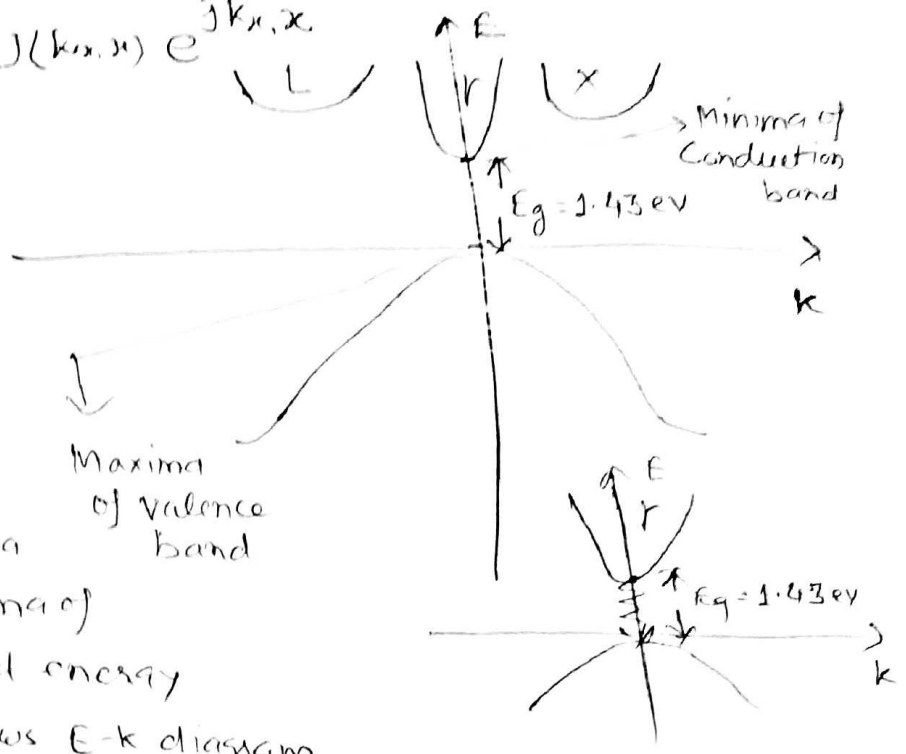 U(kx,x) e^jkx.x
E
L Γ X
Minima of
Conduction
band
Eg = 1.43 ev
k
Maxima
of valence
band
E
Γ
Eg = 1.43 ev
k
energy
E-k diagram